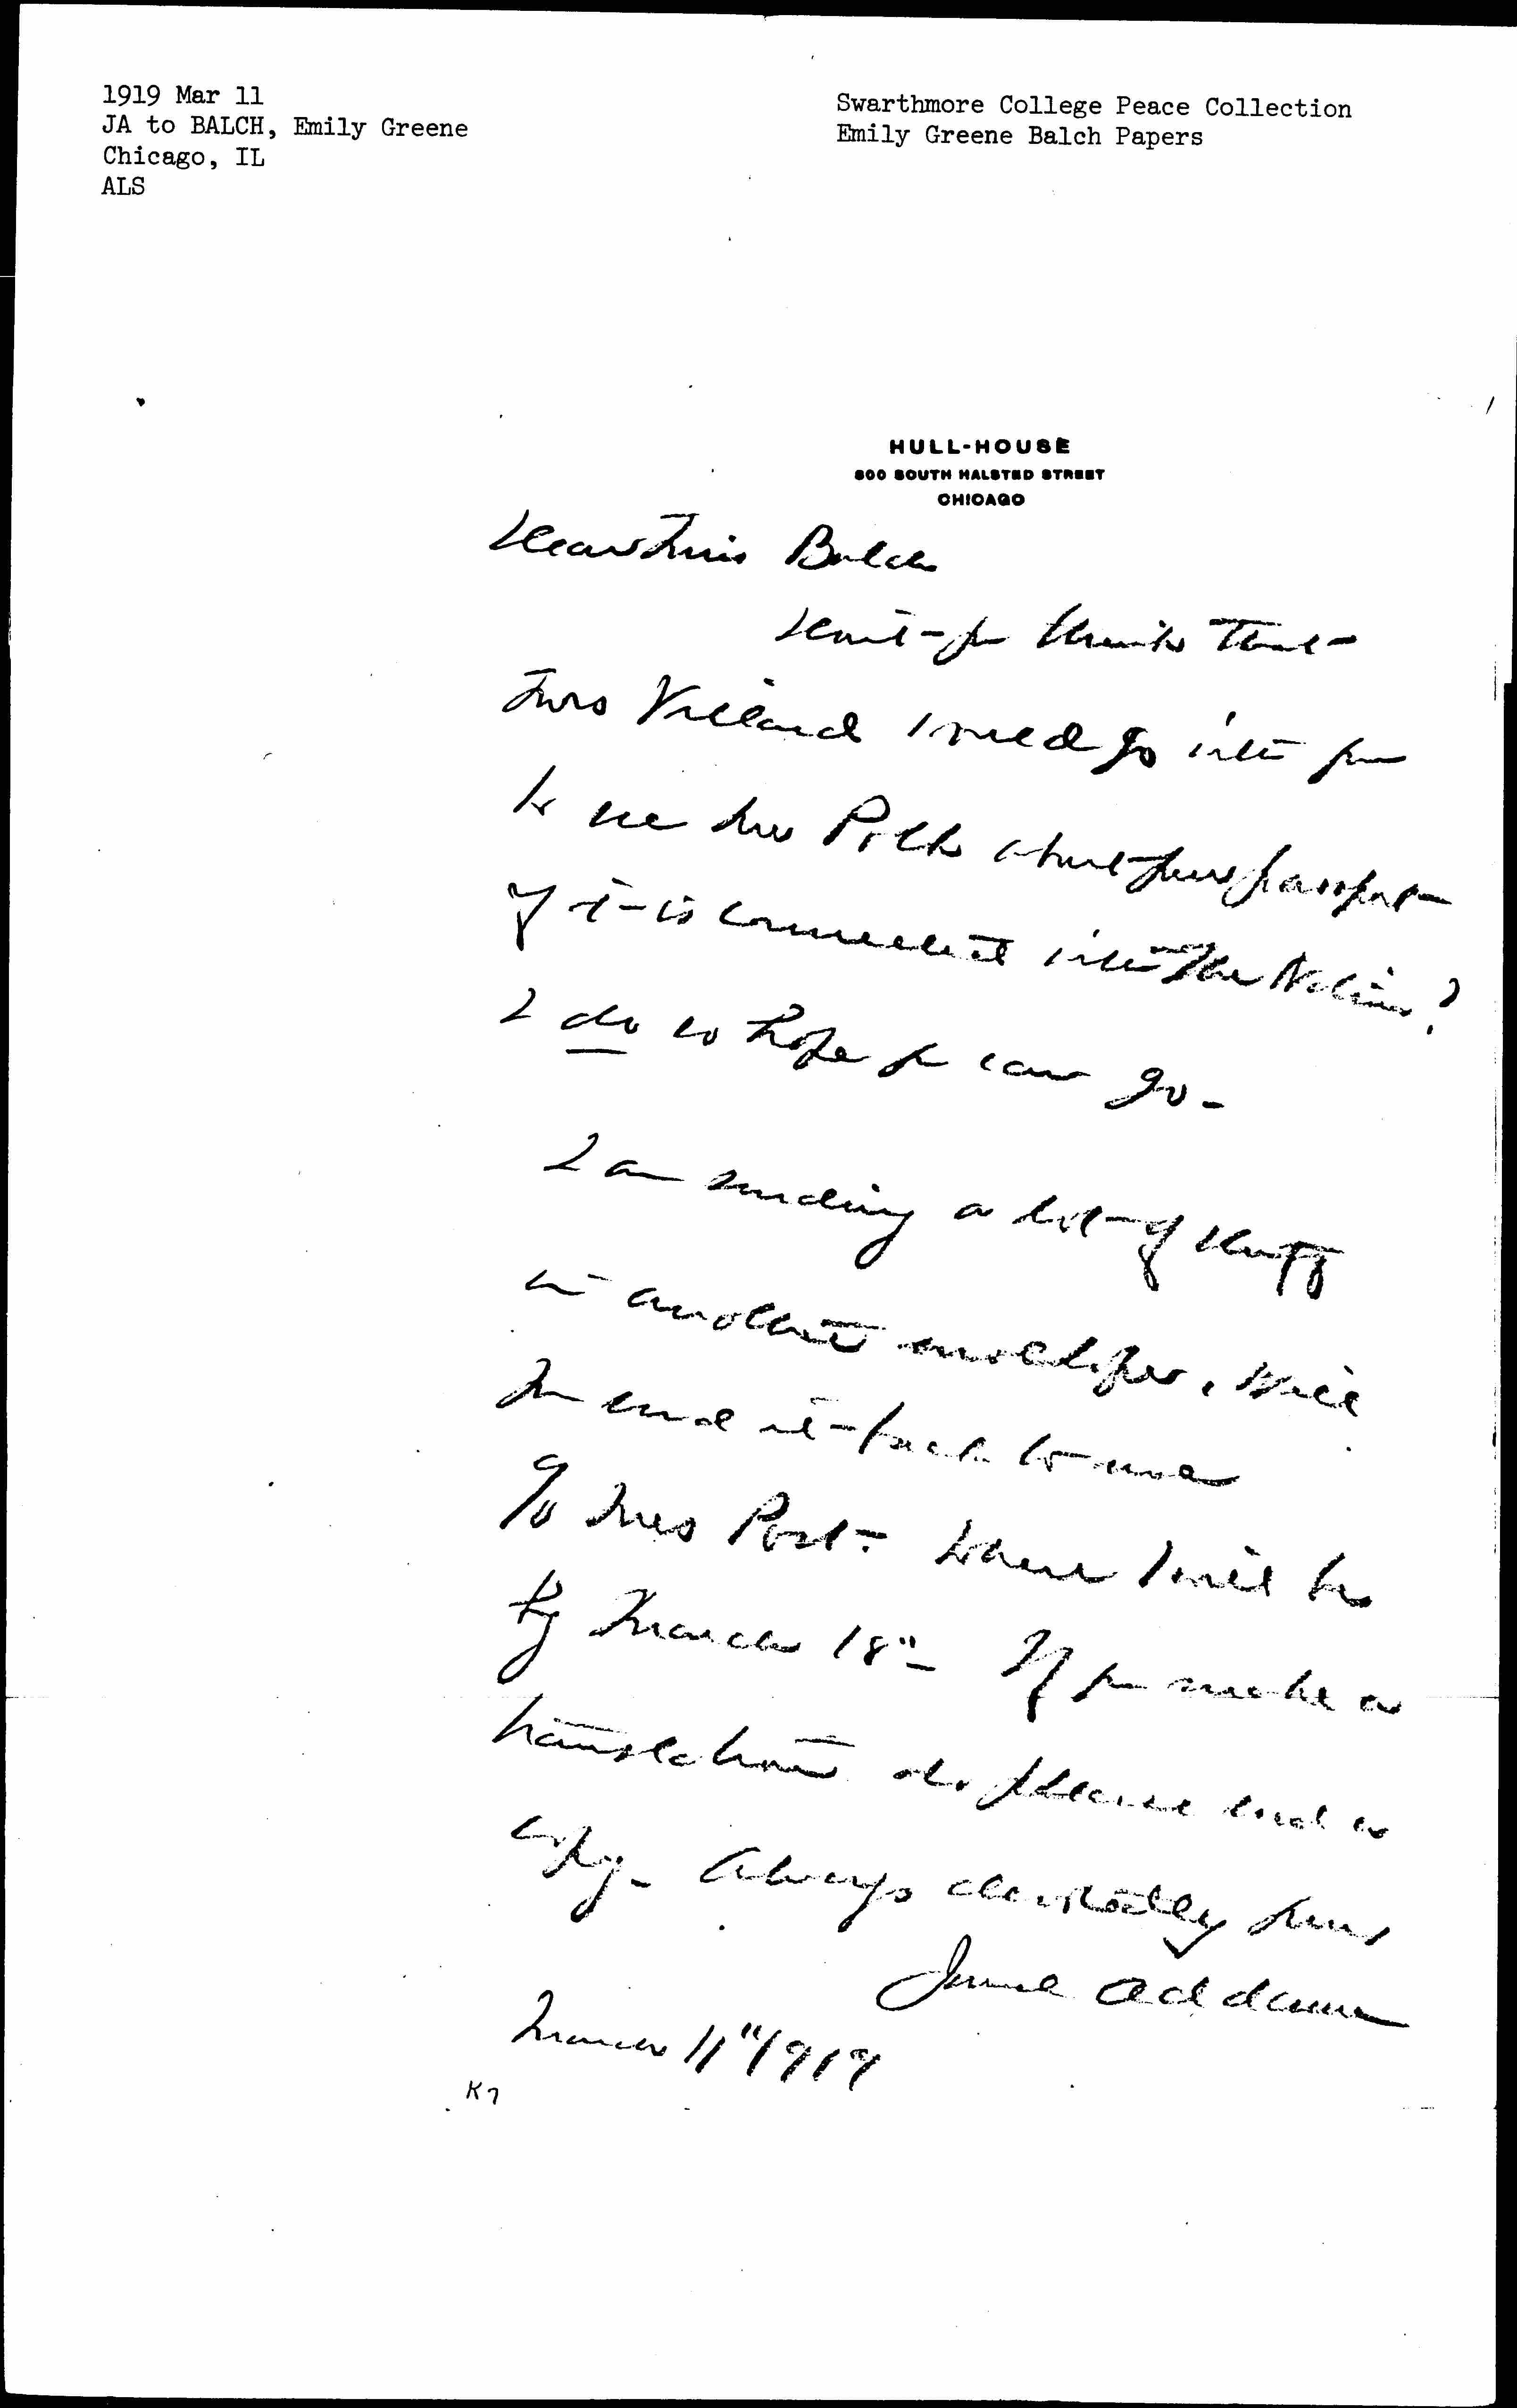 1919 Mar 11
JA to BALCH, Emily Greene
Chicago, IL
ALS
Swarthmore College Peace Collection
Emily Greene Balch Papers
HULL-HOUSE
800 SOUTH HALSTED STREET
CHICAGO
Dear Miss Balch
Don't you think that
Mrs Villard would go with you
to see Mr Polk about your passport
if it is connected with The Nation?
I do so hope you can go -
I am sending a lot of stuff
in another envelope, Will
you send it back to me
c/o Mrs Post - where I will be
by March 18" - If you make a
translation do please send a
copy - Always devotedly yours
Jane Addams
March 11" 1919
K7